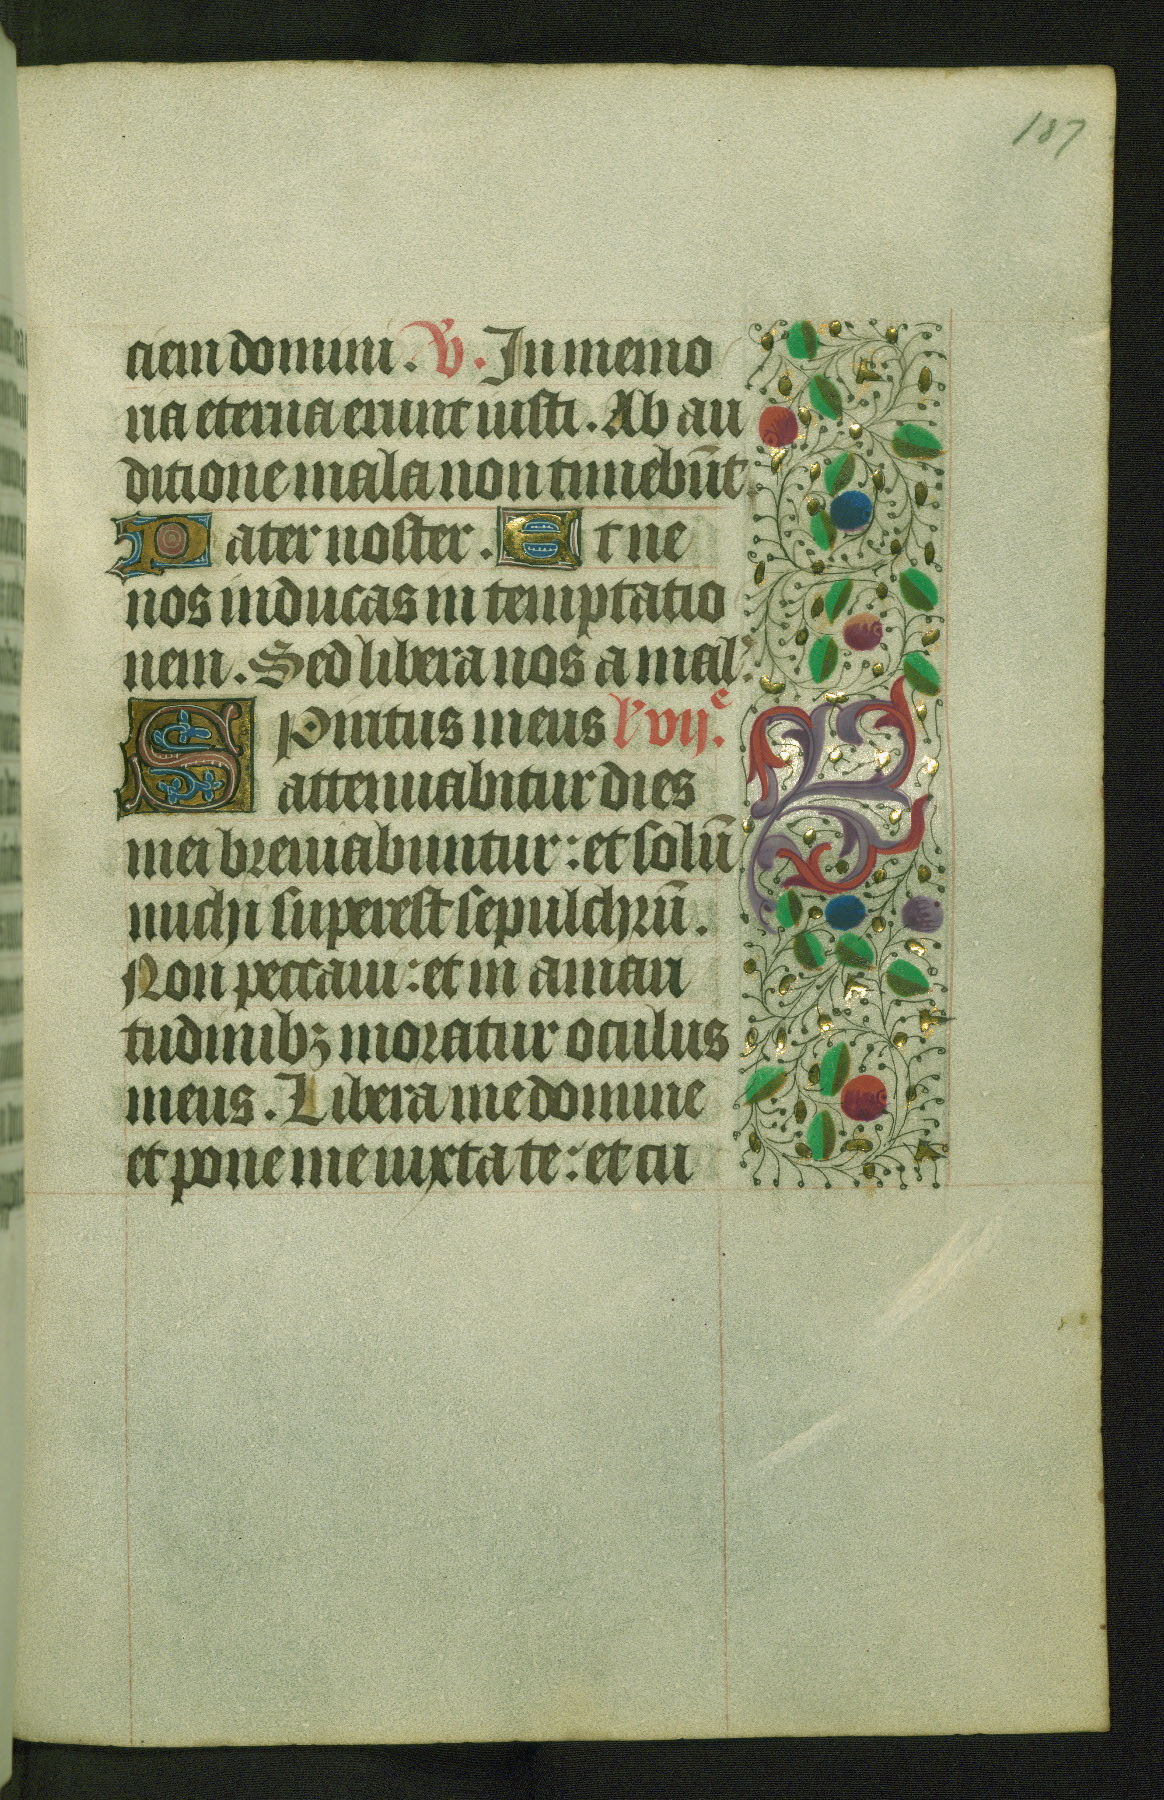 187
ciem domini. V. In memo
ria eterna erunt iusti. Ab au
ditione mala non timebūt
Pater noster. Et ne
nos inducas in temptatio
nem. Sed libera nos a mal'.
Spiritus meus l' vijᵉ.
attenuabitur dies
mei breuiabuntur: et solū
michi superest sepulchrū.
Non peccaui: et in amari
tudinibꝫ moratur oculus
meus. Libera me domine
et pone me iuxta te: et cu